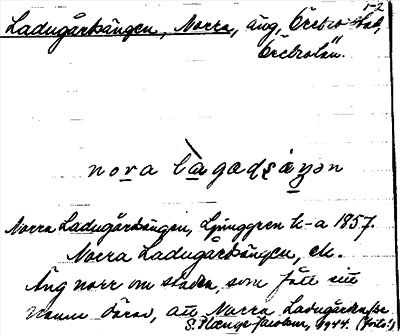 1-2
Ladugårdsängen, Norra, äng, Örebro stad,
Örebro län.
nora làgadsàŋən
Norra Ladugårdsängen, Ljunggren k-a 1857.
Norra Ladugårdsängen, ek.
Äng norr om staden, som fått sitt
namn därav, att Norra Ladugården
S. 1944. (Forts.)